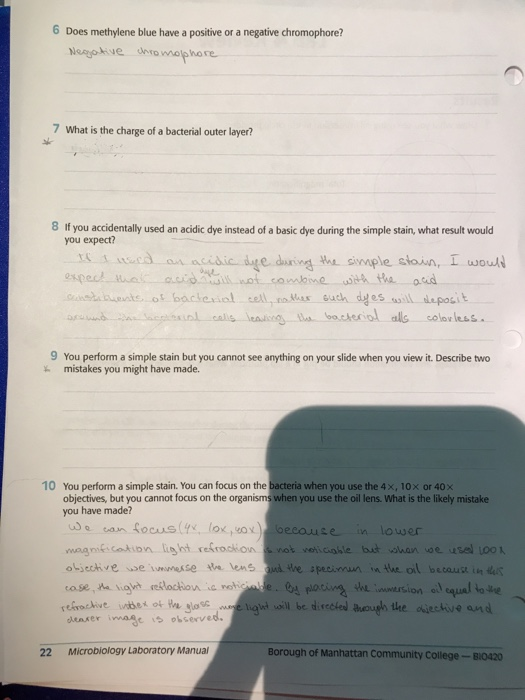 6 Does methylene blue have a positive or a negative chromophore?
Negative chromophore
7 What is the charge of a bacterial outer layer?
*
8 If you accidentally used an acidic dye instead of a basic dye during the simple stain, what result would
you expect?
If I used an acidic dye during the simple stain, I would
expect that acid dye will not combine with the acid
constituents of bacterial cell, rather such dyes will deposit
around the bacterial cells leaving the bacterial cells colorless.
9 You perform a simple stain but you cannot see anything on your slide when you view it. Describe two
mistakes you might have made.
10 You perform a simple stain. You can focus on the bacteria when you use the 4×, 10× or 40×
objectives, but you cannot focus on the organisms when you use the oil lens. What is the likely mistake
you have made?
We can focus (4x, 10x, 40x) because in lower
magnification light refraction is not noticiable but when we used 100x
objective we immerse the lens and the specimen in the oil because in this
case, the light reflaction is noticiable. By placing the immersion oil equal to the
refractive index of the glass more light will be directed through the objective and
clearer image is observed.
22 Microbiology Laboratory Manual
Borough of Manhattan Community College — BIO420